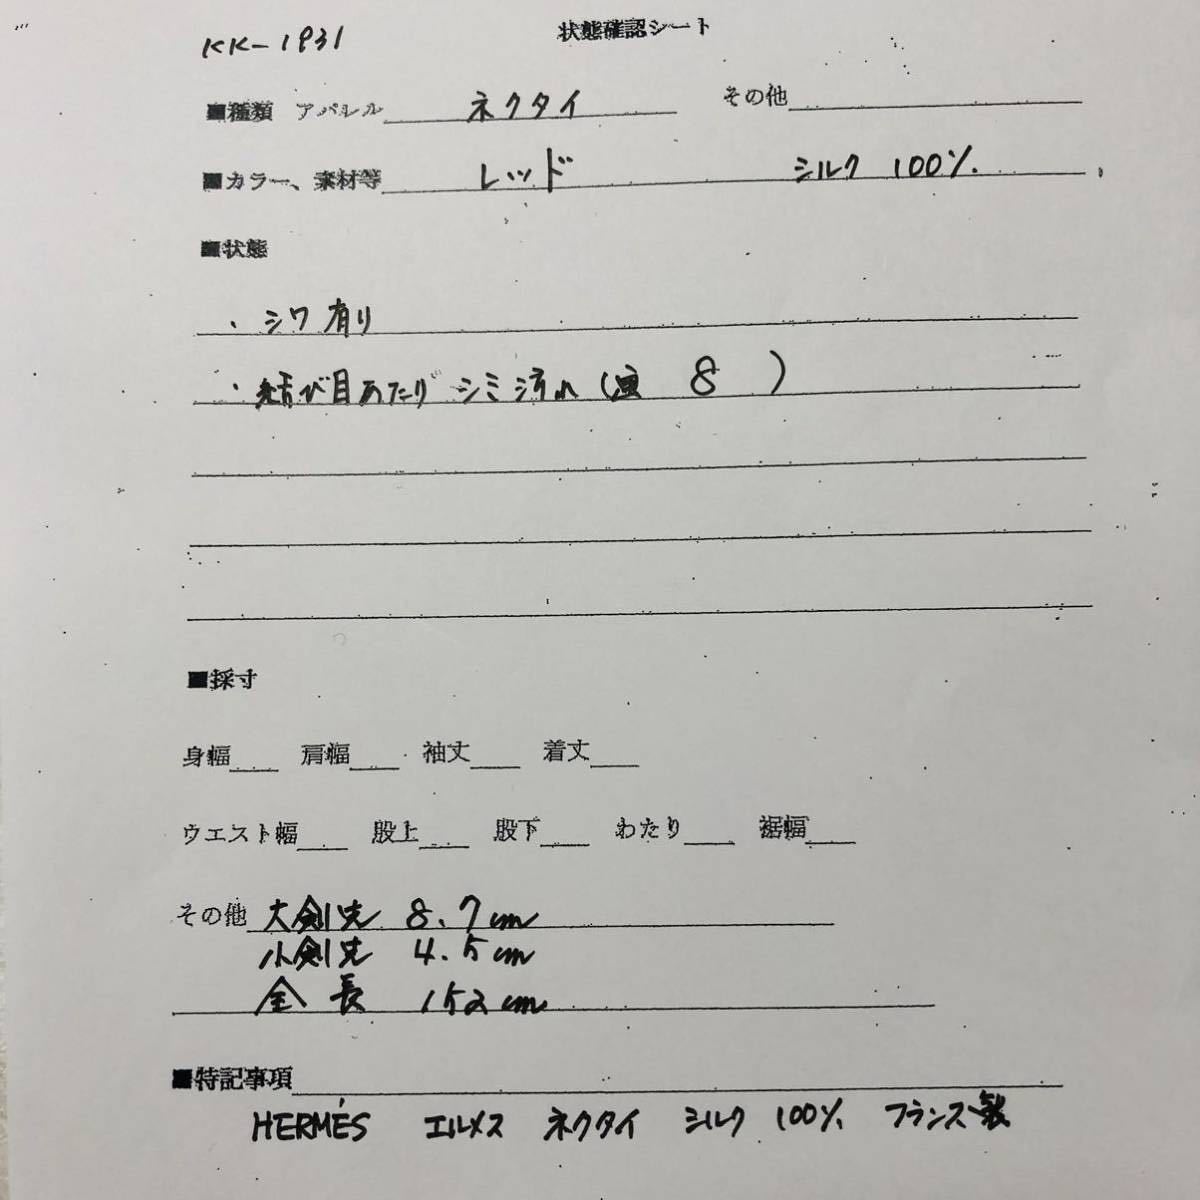 KK-1931
状態確認シート
■種類 アパレル ネクタイ その他
■カラー、素材等 レッド シルク 100%
■状態
・シワ有り
・結び目あたり シミ汚れ ( 8 )
■採寸
身幅 肩幅 袖丈 着丈
ウエスト幅 股上 股下 わたり 裾幅
その他 大剣先 8.7cm
小剣先 4.5cm
全長 152cm
■特記事項
HERMÈS エルメス ネクタイ シルク 100% フランス製